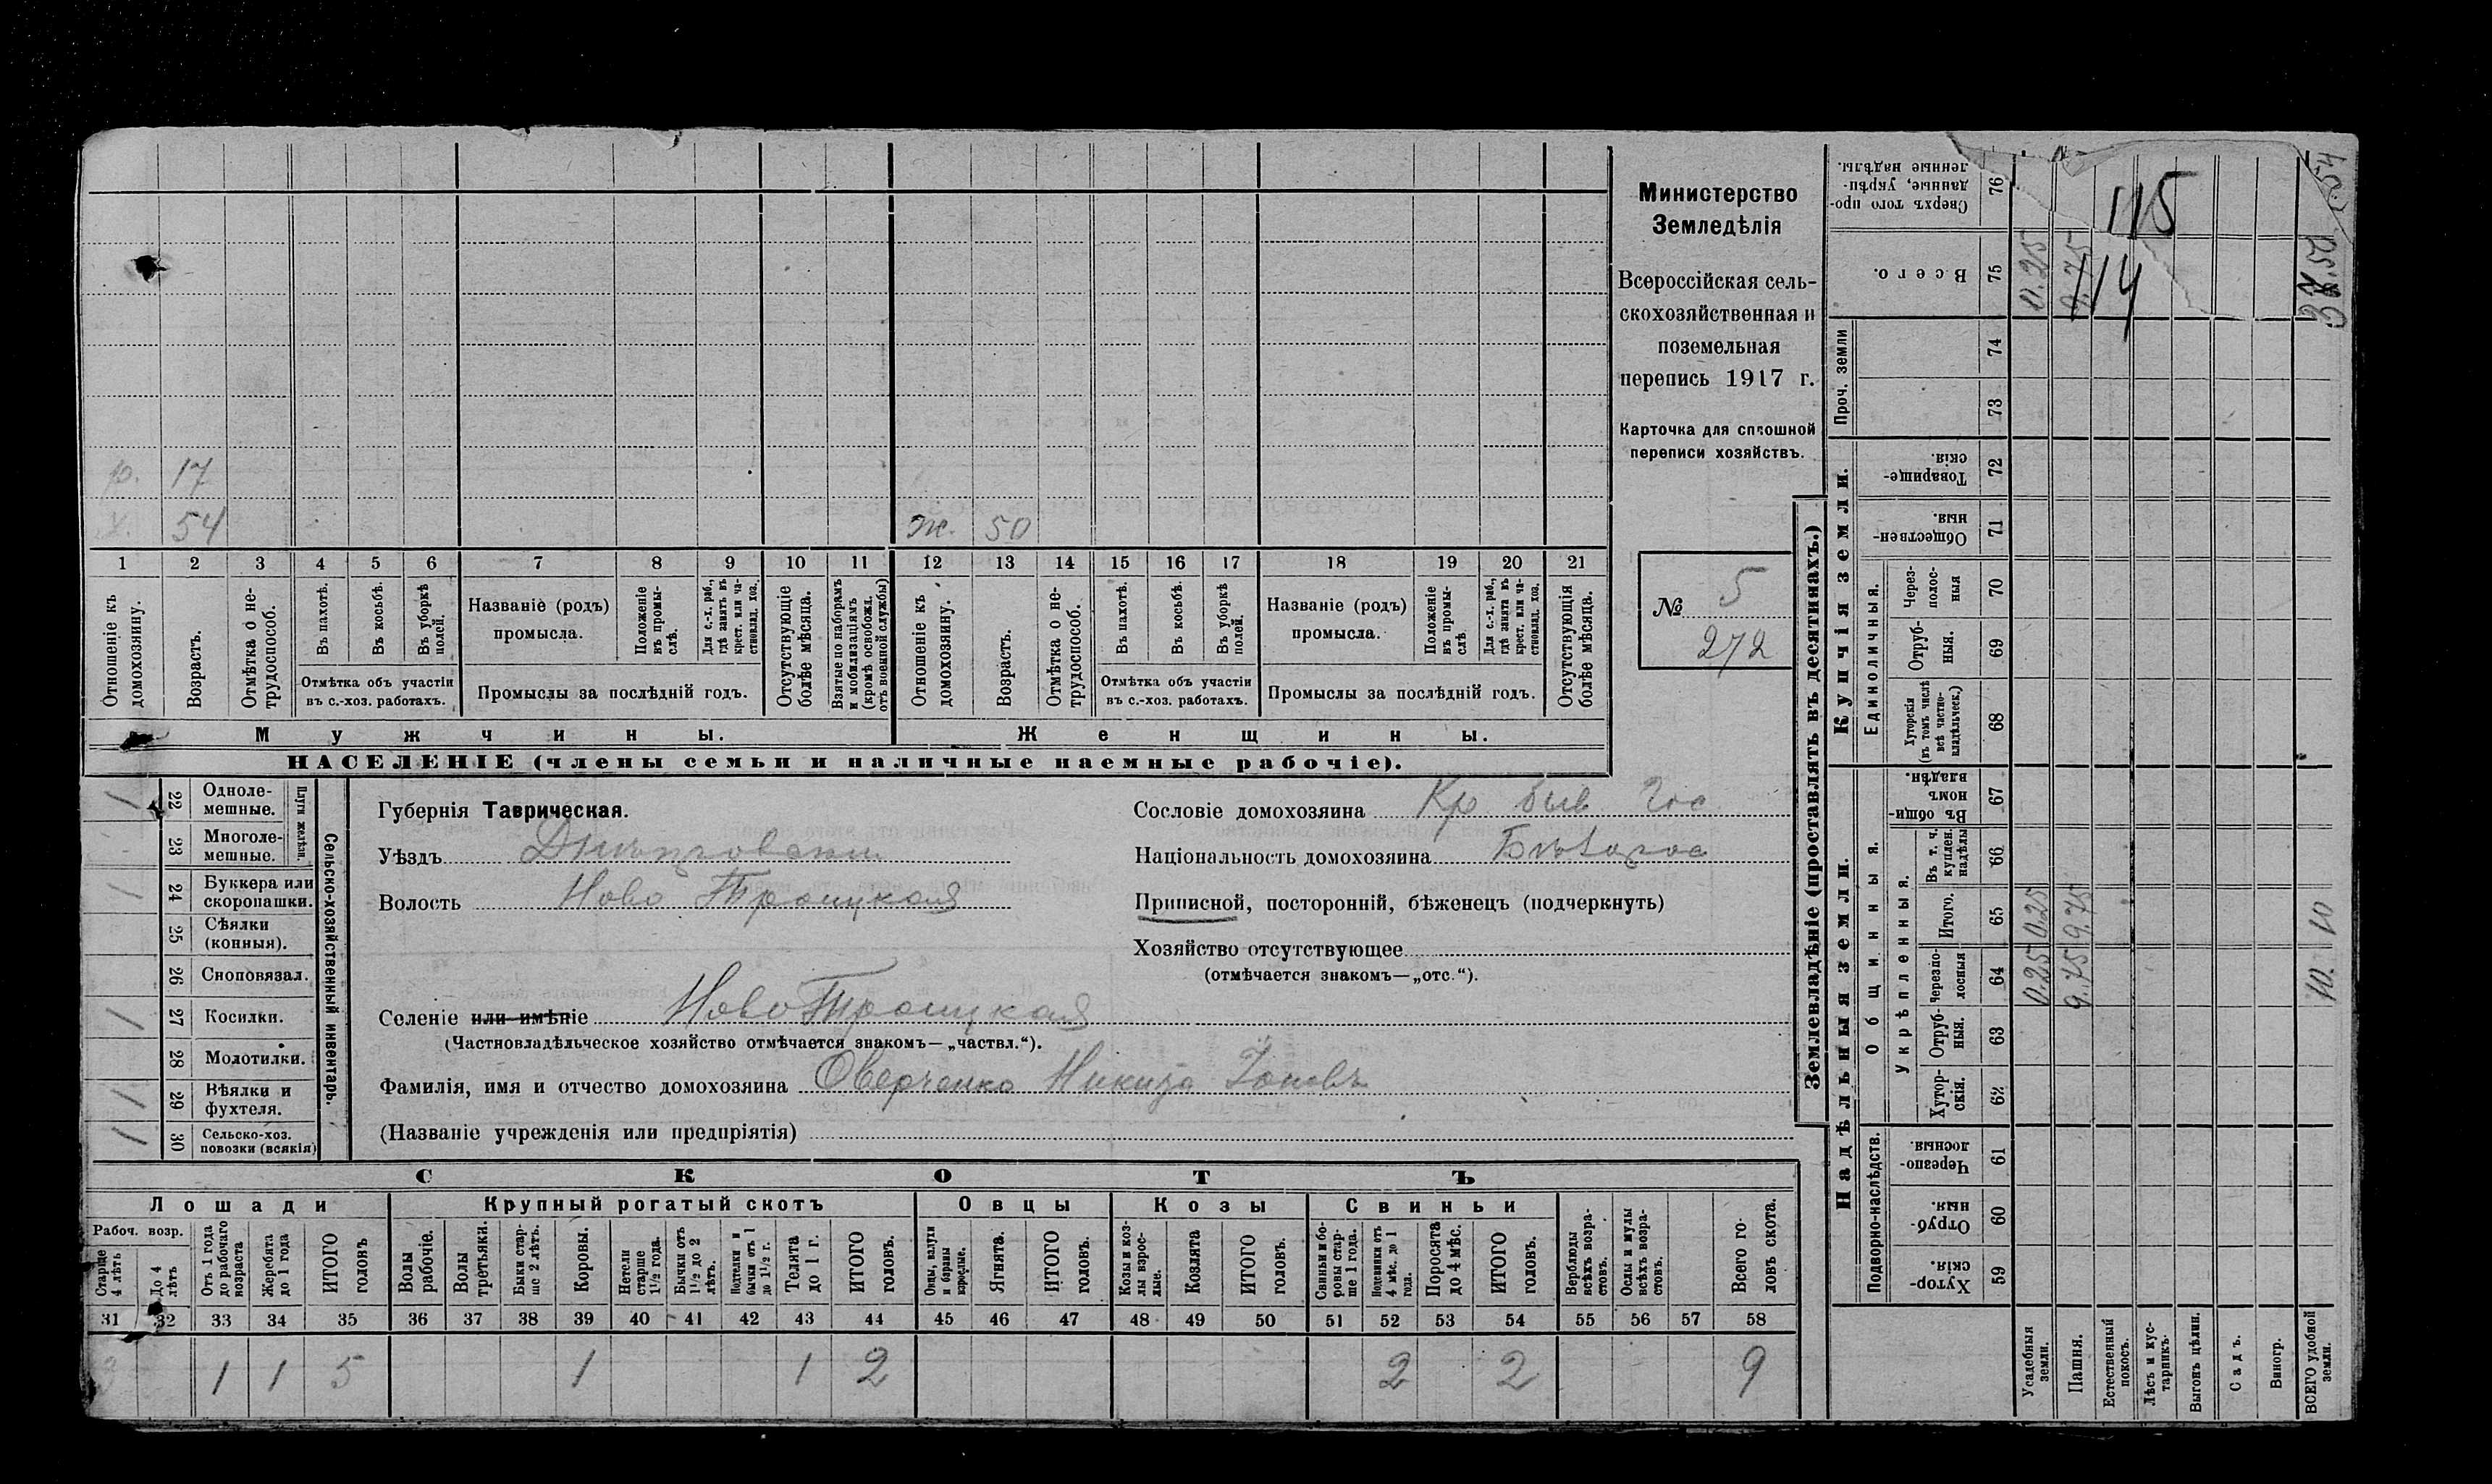 Министерство
Земледѣлія
Всероссійская сель-
скохозяйственная и
поземельная
перепись 1917 г.
Карточка для сплошной
переписи хозяйствъ.
№ 5
272
р. 17
х. 54
ж. 50
1 2 3 4 5 6 7 8 9 10 11 12 13 14 15 16 17 18 19 20 21
Отношеніе къ домохозяину.
Возрастъ.
Отмѣтка о не-трудоспособ.
Въ пахотѣ.
Въ косьбѣ.
Въ уборкѣ полей.
Отмѣтка объ участіи
въ с.-хоз. работахъ.
Названіе (родъ)
промысла.
Положеніе въ промы-слѣ.
Для с.-х. раб., гдѣ занятъ въ крест. или ча-стновлад. хоз.
Промыслы за послѣдній годъ.
Отсутствующіе болѣе мѣсяца.
Взятые по наборамъ и мобилизаціямъ (кромѣ освобожд. отъ военной службы)
Отношеніе къ домохозяину.
Возрастъ.
Отмѣтка о не-трудоспособ.
Въ пахотѣ.
Въ косьбѣ.
Въ уборкѣ полей.
Отмѣтка объ участіи
въ с.-хоз. работахъ.
Названіе (родъ)
промысла.
Положеніе въ промы-слѣ
Для с.-х. раб., гдѣ занята въ крест. или ча-стновлад. хоз.
Промыслы за послѣдній годъ.
Отсутствующія болѣе мѣсяца.
Мужчины.
Женщины.
НАСЕЛЕНІЕ (члены семьи и наличные наемные рабочіе).
Сельско-хозяйственный инвентарь.
Плуги желѣзн.
1 22 Одноле-мешные.
23 Многоле-мешные.
1 24 Буккера или скоропашки.
25 Сѣялки (конныя).
26 Сноповязал.
1 27 Косилки.
28 Молотилки.
1 29 Вѣялки и фухтеля.
1 30 Сельско-хоз. повозки (всякія)
Губернія Таврическая.
Уѣздъ Днѣпровскій
Волость Ново Троицкая
Селеніе или имѣніе НовоТроицкая
(Частновладѣльческое хозяйство отмѣчается знакомъ—„частвл.“).
Фамилія, имя и отчество домохозяина Оверченко Никита Іоновъ
(Названіе учрежденія или предпріятія)
Сословіе домохозяина Кр быв Гос
Національность домохозяина
Приписной, посторонній, бѣженецъ (подчеркнуть)
Хозяйство отсутствующее
(отмѣчается знакомъ—„отс.“).
СКОТЪ
Лошади
Крупный рогатый скотъ
Овцы
Козы
Свиньи
Рабоч. возр.
Старше 4 лѣтъ
До 4 лѣтъ
Отъ 1 года до рабочаго возраста
Жеребята до 1 года
ИТОГО головъ
Волы рабочіе.
Волы третьяки.
Быки стар-ше 2 лѣтъ.
Коровы.
Нетели старше 1½ года.
Бычки отъ 1½ до 2 лѣтъ.
Подтелки и бычки отъ 1 до 1½ г.
Телята до 1 г.
ИТОГО головъ.
Овцы, валухи и бараны взрослые.
Ягнята.
ИТОГО головъ.
Козы и коз-лы взрос-лые.
Козлята
ИТОГО головъ.
Свиньи и бо-ровы стар-ше 1 года.
Подсвинки отъ 4 мѣс. до 1 года.
Поросята до 4 мѣс.
ИТОГО головъ.
Верблюды всѣхъ возра-стовъ.
Ослы и мулы всѣхъ возра-стовъ.
Всего го-ловъ скота.
31 32 33 34 35 36 37 38 39 40 41 42 43 44 45 46 47 48 49 50 51 52 53 54 55 56 57 58
3 1 1 5 1 1 2 2 2 9
Землевладѣніе (проставлять въ десятинахъ.)
Купчія земли.
Надѣльныя земли.
Проч. земли
Единоличныя.
Общинныя.
Укрѣпленныя.
Подворно-наслѣдств.
Сверхъ того про-данные, укрѣп-ленные надѣлы. 76
Всего. 75
74
73
Товарище-скія. 72
Обществен-ныя. 71
Через-полос-ныя 70
Отруб-ныя. 69
Хуторскія (въ томъ числѣ всѣ частно-владѣльческ.) 68
Въ общин-номъ владѣн. 67
Въ т. ч. куплен. надѣлы 66
Итого. 65
Черезпо-лосныя 64
Отруб-ныя. 63
Хутор-скія. 62
Черезпо-лосныя 61
Отруб-ныя. 60
Хутор-скія. 59
Усадебныя земли.
Пашня.
Естественный покосъ.
Лѣсъ и кус-тарникъ.
Выгонъ цѣлин.
Садъ.
Виногр.
ВСЕГО удобной земли.
0.25 0.25 0.25
9.75 9.75 9.75
10. 10
115
114